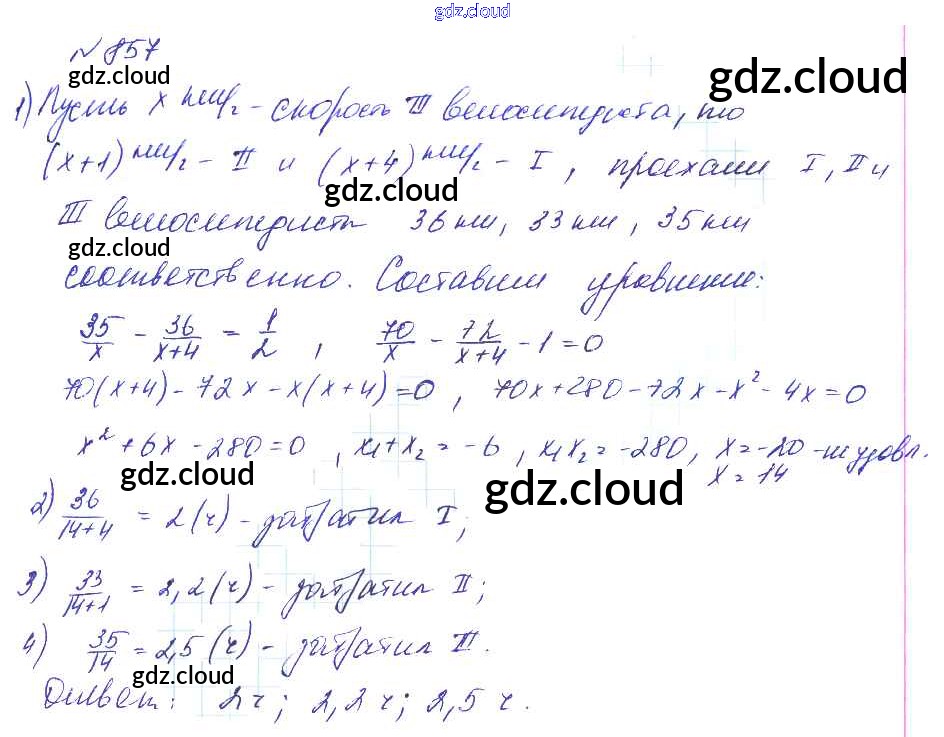 gdz.cloud
№ 857
gdz.cloud gdz.cloud
1) Пусть x км/ч - скорость III велосипедиста, то
(x+1) км/ч - II и (x+4) км/ч - I, проехали I, II и
gdz.cloud
III велосипедисты 36 км, 33 км, 35 км
gdz.cloud
соответственно. Составим уравнение:
35/x - 36/(x+4) = 1/2, 70/x - 72/(x+4) - 1 = 0
70(x+4) - 72x - x(x+4) = 0, 70x + 280 - 72x - x² - 4x = 0
x² + 6x - 280 = 0, x₁+x₂ = -6, x₁x₂ = -280, x = -20 - не удовл.
x = 14
gdz.cloud gdz.cloud
2) 36/(14+4) = 2 (ч) - затратил I;
3) 33/(14+1) = 2,2 (ч) - затратил II;
4) 35/14 = 2,5 (ч) - затратил III.
gdz.cloud
Ответ: 2 ч; 2,2 ч; 2,5 ч.